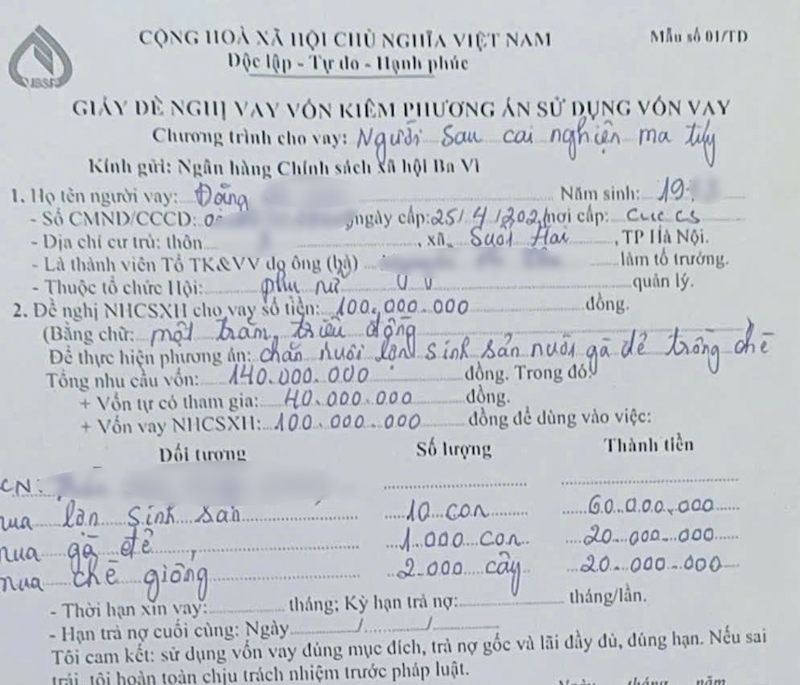 CỘNG HOÀ XÃ HỘI CHỦ NGHĨA VIỆT NAM
Mẫu số 01/TD
Độc lập - Tự do - Hạnh phúc
VBSP
GIẤY ĐỀ NGHỊ VAY VỐN KIÊM PHƯƠNG ÁN SỬ DỤNG VỐN VAY
Chương trình cho vay: Người sau cai nghiện ma túy
Kính gửi: Ngân hàng Chính sách xã hội Ba Vì
1. Họ tên người vay: Đặng Năm sinh: 19
- Số CMND/CCCD: 0 ,ngày cấp: 25/4/202 ,nơi cấp: cuc cs
- Địa chỉ cư trú: thôn , xã Suối Hai , TP Hà Nội.
- Là thành viên Tổ TK&VV do ông (bà) làm tổ trưởng.
- Thuộc tổ chức Hội: phụ nữ quản lý.
2. Đề nghị NHCSXH cho vay số tiền: 100.000.000 đồng.
(Bằng chữ: một trăm triệu đồng )
Để thực hiện phương án: chăn nuôi lợn sinh sản nuôi gà đẻ trồng chè
Tổng nhu cầu vốn: 140.000.000 đồng. Trong đó:
+ Vốn tự có tham gia: 40.000.000 đồng.
+ Vốn vay NHCSXH: 100.000.000 đồng để dùng vào việc:
Đối tượng Số lượng Thành tiền
CN:
mua lợn sinh sản 10 con 60.000.000
mua gà đẻ 1.000 con 20.000.000
mua chè giống 2.000 cây 20.000.000
- Thời hạn xin vay: tháng; Kỳ hạn trả nợ: tháng/lần.
- Hạn trả nợ cuối cùng: Ngày / /
Tôi cam kết: sử dụng vốn vay đúng mục đích, trả nợ gốc và lãi đầy đủ, đúng hạn. Nếu sai
trái, tôi hoàn toàn chịu trách nhiệm trước pháp luật.
Ngày tháng năm